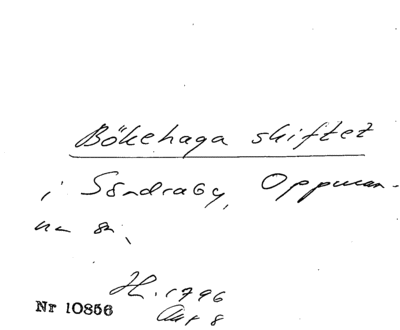 Bökehaga skiftet
i Söndraby, Oppman-
na sn.
H. 1796
Akt 8
Nr 10856